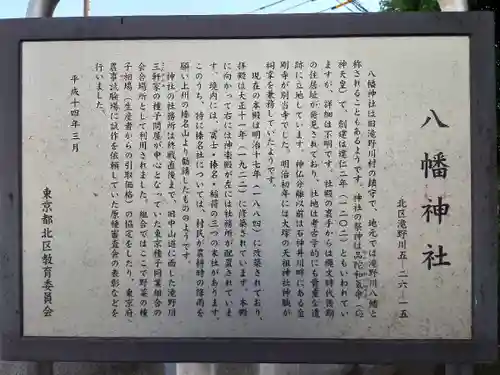 八幡神社
北区滝野川五-二六-一五
八幡神社は旧滝野川村の鎮守で、地元では滝野川八幡と
称されることもあるようです。神社の祭神は品陀和気命（応
神天皇）で、創建は建仁二年（一二〇二）ともいわれてい
ますが、詳細は不明です。社殿の裏手からは縄文時代後期
の住居址が発見されており、社地は考古学的にも貴重な遺
跡に立地しています。神仏分離以前は石神井川畔にある金
剛寺が別当寺でした。明治初年には大塚の天祖神社神職が
祠掌を兼務していたようです。
現在の本殿は明治十七年（一八八四）に改築されており、
拝殿は大正十一年（一九二二）に修築されています。本殿
に向かって右には神楽殿が左には社務所が配置されていま
す。境内には、冨士・榛名・稲荷の三つの末社があります。
このうち、特に榛名社については、村民が農耕時の降雨を
願い上州の榛名山より勧請したもののようです。
神社の社務所は終戦直後まで、旧中山道に面した滝野川
三軒家の種子問屋が中心となっていた東京種子同業組合の
会合場所として利用されました。組合ではここで野菜の種
子相場（生産者からの引取価格）の協定をしたり、東京府
農事試験場に試作を依頼していた原種審査会の表彰などを
行いました。
平成十四年三月
東京都北区教育委員会